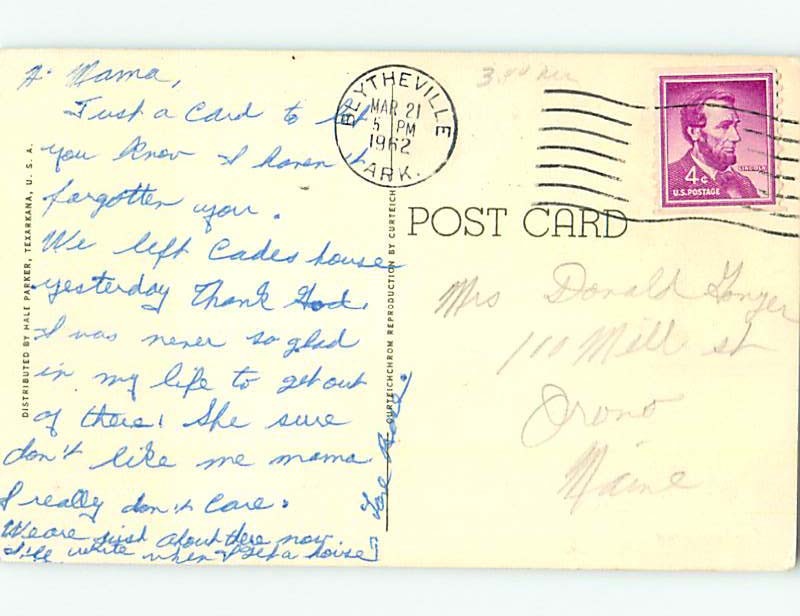 Hi Mama,
Just a card to let
you know I haven't
forgotten you.
We left Cades house
yesterday Thank God.
I was never so glad
in my life to get out
of there! She sure
don't like me mama
I really don't care.
We are just about there now
I'll write when I get a house
Love
DISTRIBUTED BY HALE PARKER, TEXARKANA, U. S. A.
CURTEICHCHROM REPRODUCTION BY CURTEICH
BLYTHEVILLE
MAR 21
5 PM
1962
ARK.
POST CARD
LINCOLN
4¢
U.S. POSTAGE
Mrs Donald
110 Mill st
Orono
Maine